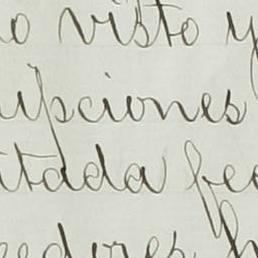 o visto y
ipciones
itada fe
edores h